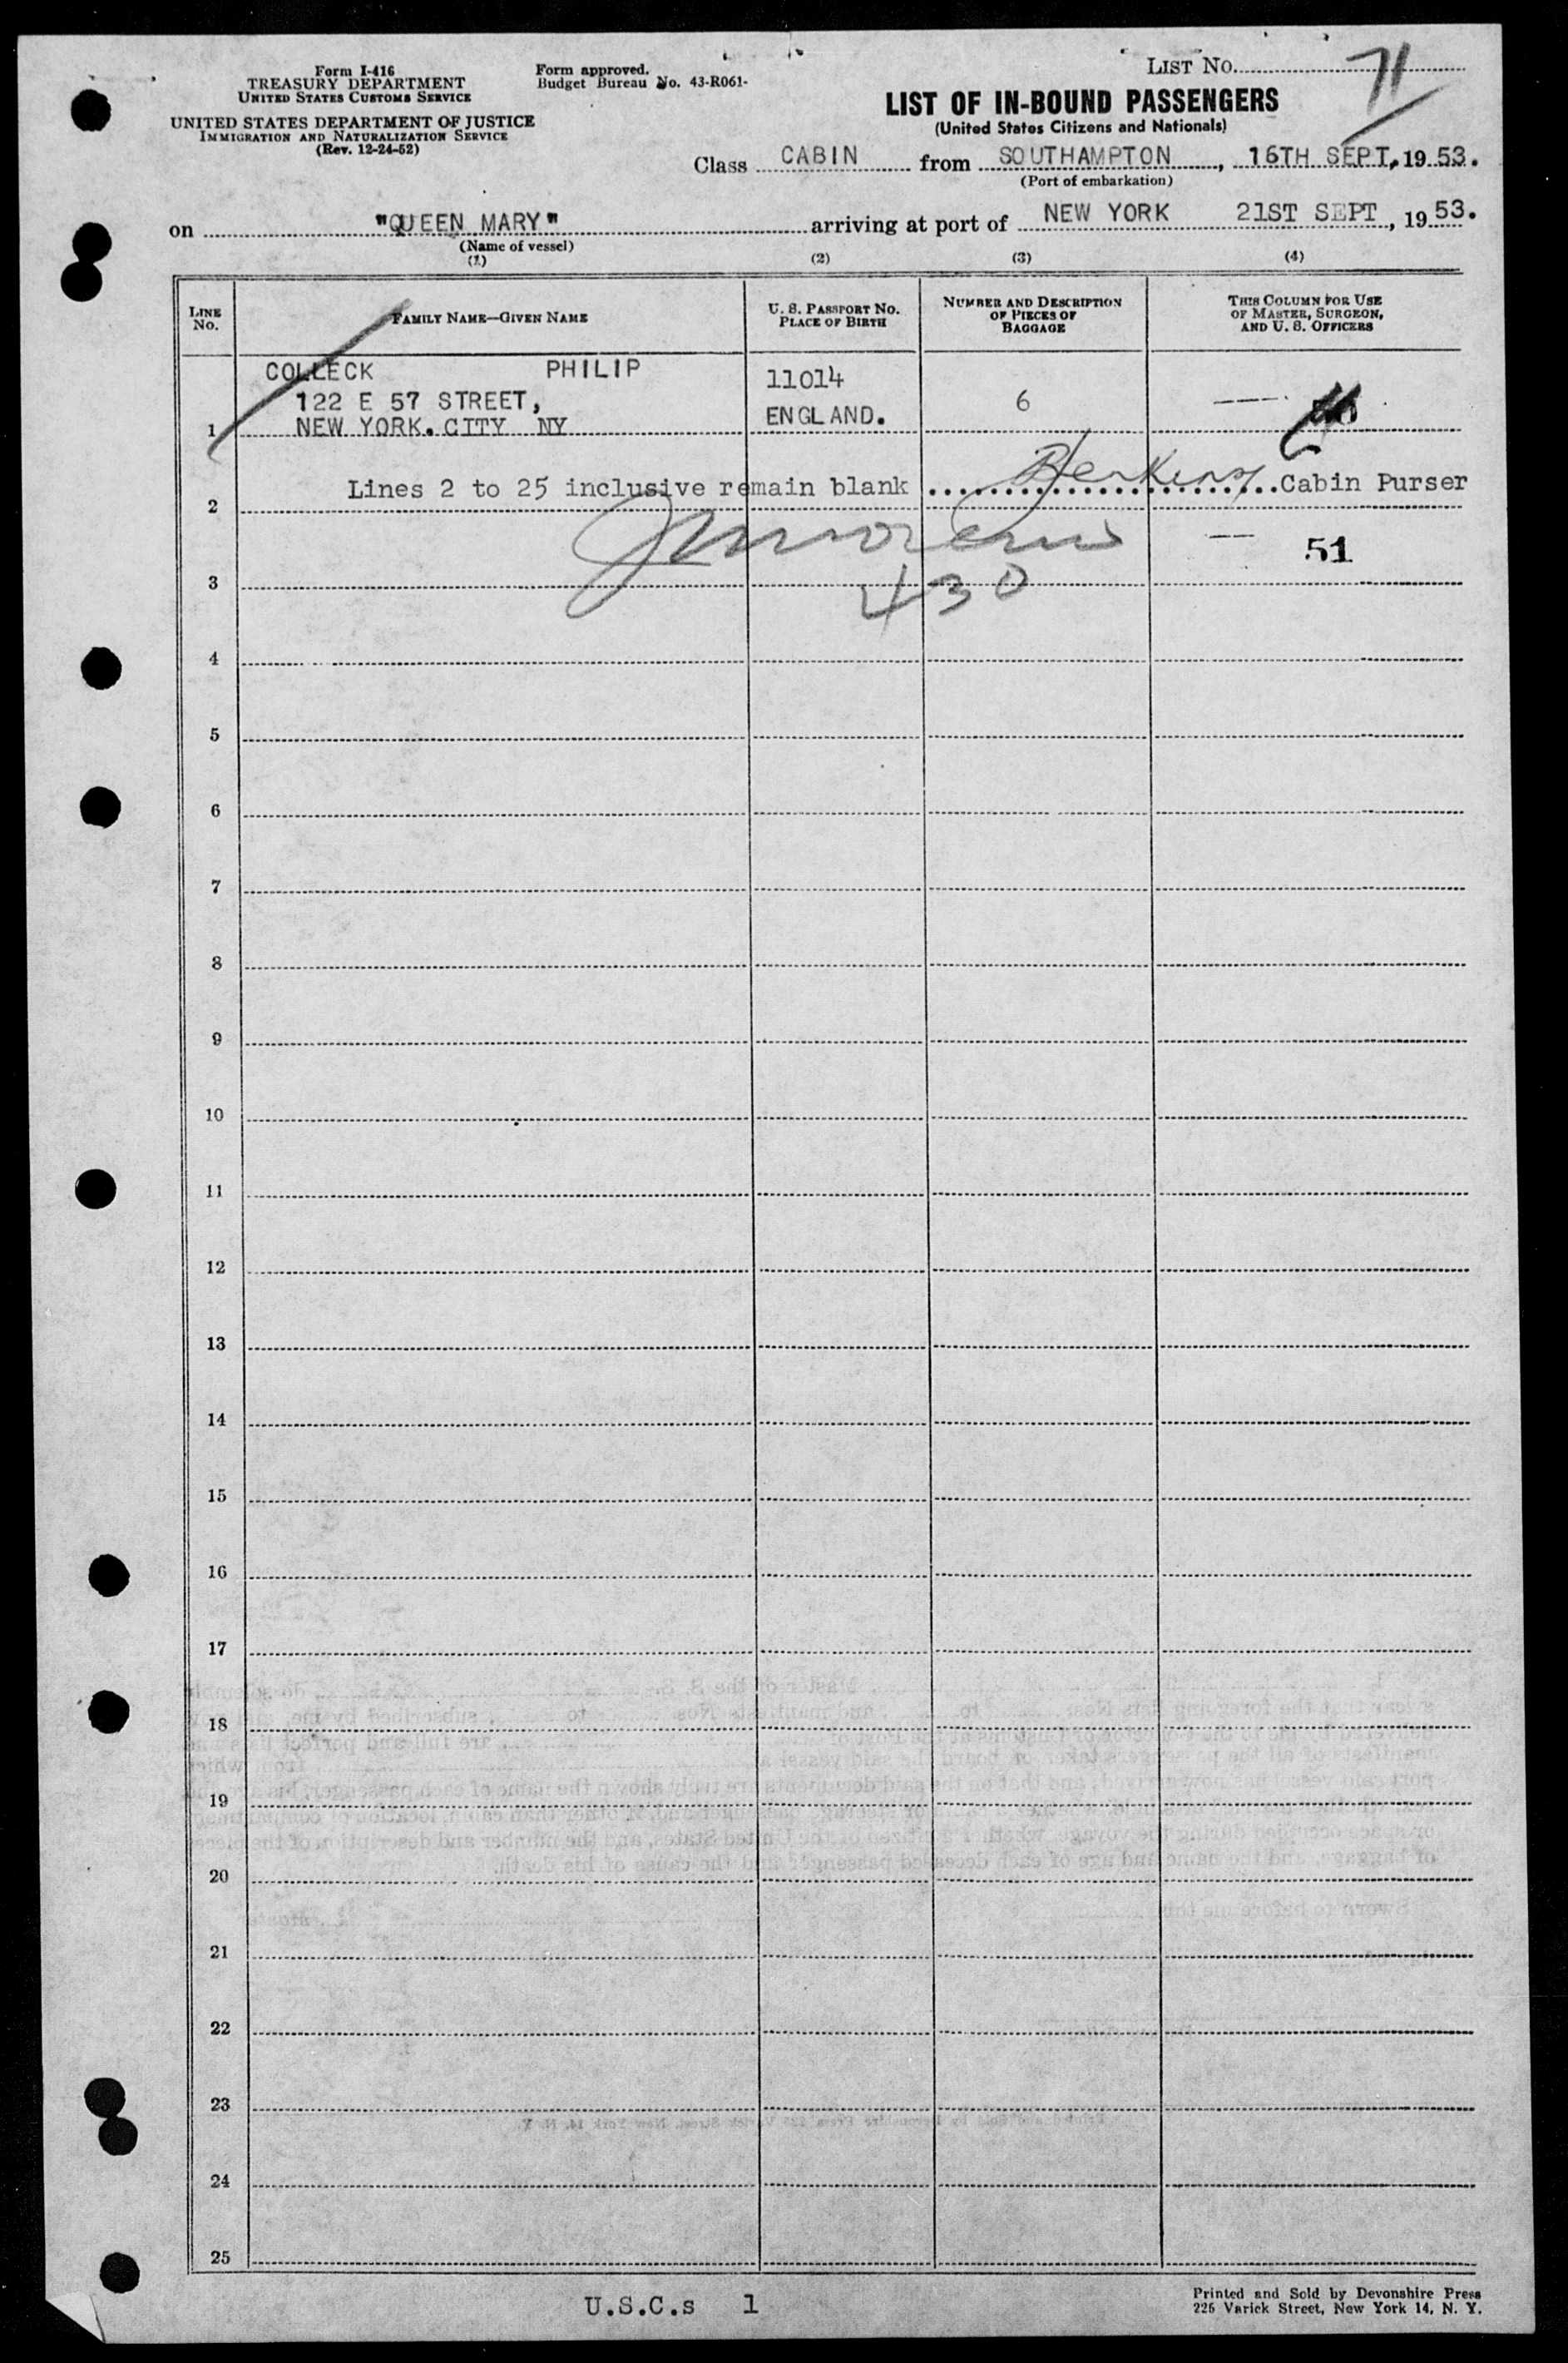 Form I-416
TREASURY DEPARTMENT
UNITED STATES CUSTOMS SERVICE
UNITED STATES DEPARTMENT OF JUSTICE
IMMIGRATION AND NATURALIZATION SERVICE
(Rev. 12-24-52)
Form approved.
Budget Bureau No. 43-R061-
LIST NO. 71
LIST OF IN-BOUND PASSENGERS
(United States Citizens and Nationals)
Class CABIN from SOUTHAMPTON, 16TH SEPT, 19 53.
(Port of embarkation)
on "QUEEN MARY" arriving at port of NEW YORK 21ST SEPT, 19 53.
(Name of vessel)
(1) (2) (3) (4)
LINE NO.
FAMILY NAME—GIVEN NAME
U. S. PASSPORT NO.
PLACE OF BIRTH
NUMBER AND DESCRIPTION
OF PIECES OF
BAGGAGE
THIS COLUMN FOR USE
OF MASTER, SURGEON,
AND U. S. OFFICERS
COLLECK PHILIP 11014
122 E 57 STREET, 6
1 NEW YORK. CITY NY ENGLAND.
Lines 2 to 25 inclusive remain blank Cabin Purser
2
51
3 430
4
5
6
7
8
9
10
11
12
13
14
15
16
17
18
19
20
21
22
23
24
25
U.S.C.s 1
Printed and Sold by Devonshire Press
225 Varick Street, New York 14, N. Y.